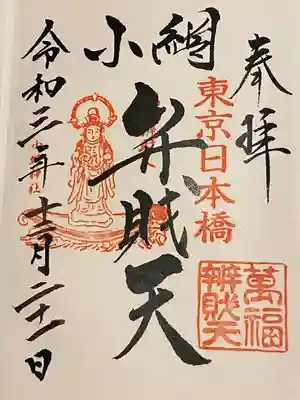 奉拝
東京日本橋
萬福
辨財天
小網
弁財天
令和三年十二月二十一日